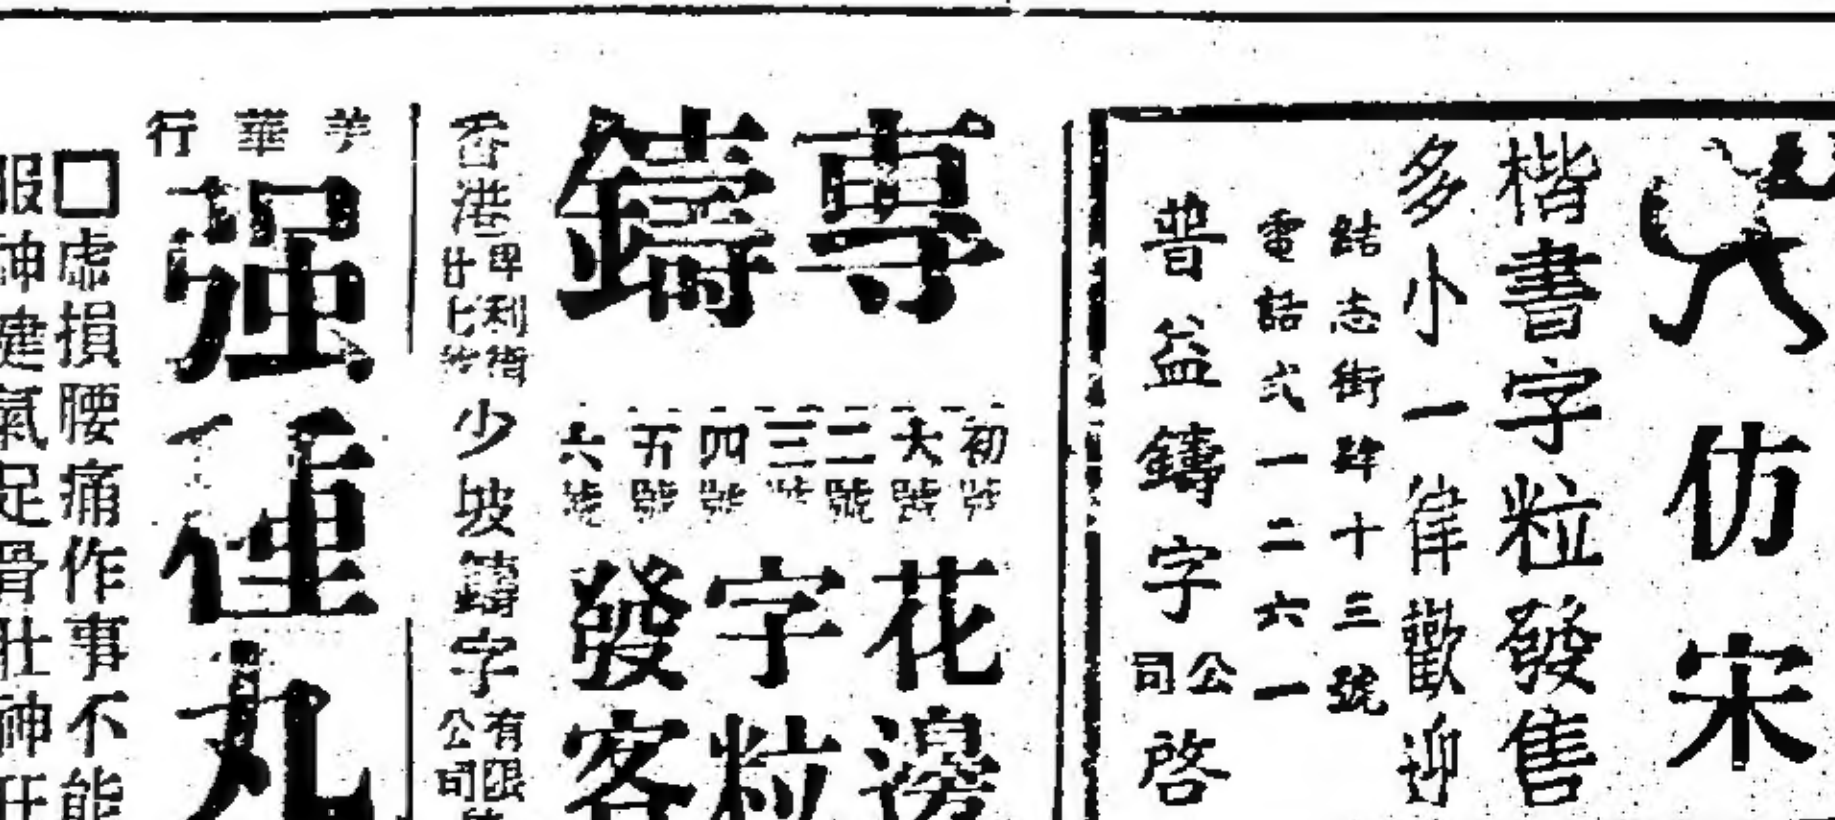 仿宋
楷書字粒發售
多小一律歡迎
結志街肆十三號
電話弍一二六一
普益鑄字公司啓
專鑄
初號
大號
二號
三號
四號
五號
六號
花邊
字粒
發客
香港卑利街廿七號
少坡鑄字有限公司
行華芋
强健丸
□虛損腰痛作事不能
服神健氣足骨壯神旺